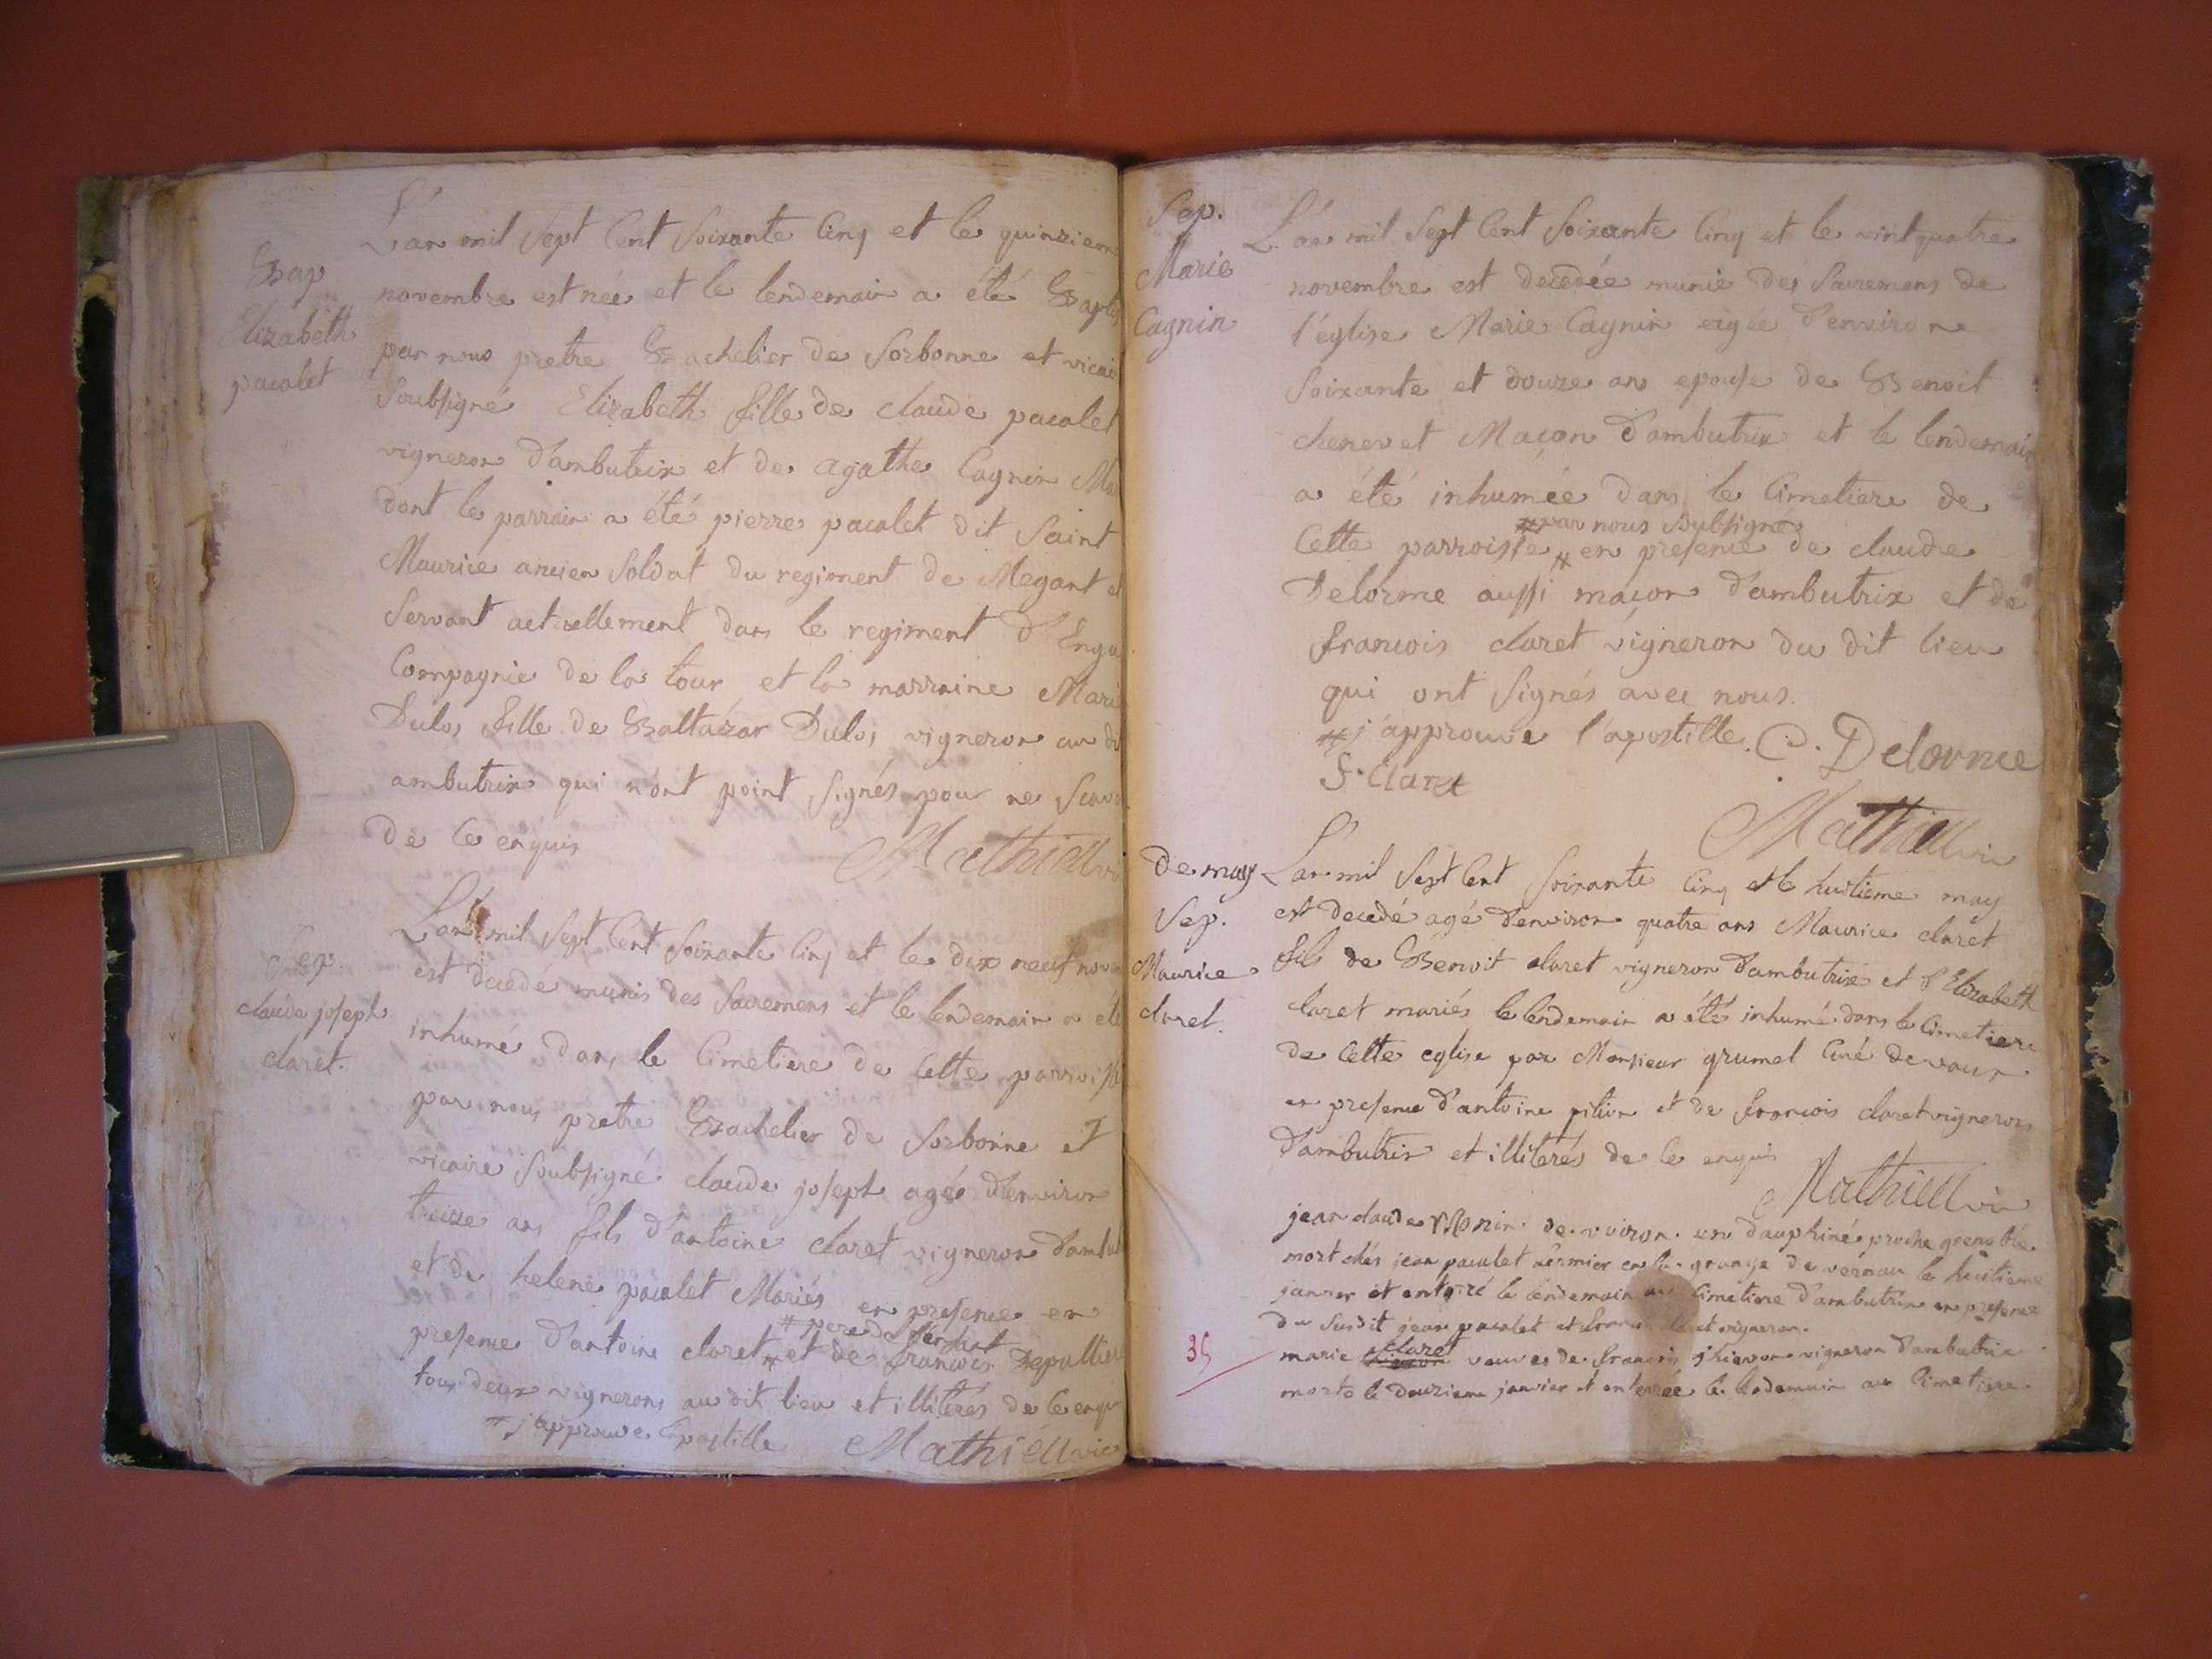 Bap
Elizabeth
pacalet
L'an mil sept cent soixante cinq et le quinzieme
novembre est née et le lendemain a été Bapti
par nous pretre Bachelier de Sorbonne et vicai
soubsigné Elizabeth fille de claude pacalet
vigneron d'ambutrix et de agathe Cagnin Ma
dont le parrain a été pierre pacalet dit Saint
Maurice ancien soldat du regiment de Megant et
servant actuellement dans le regiment d'
Compagnie de la tour et la marraine Mari
Dulos fille de Baltazar Dulos vigneron au di
ambutrix qui n'ont point signés pour ne scavo
de ce enquis
Mathieu vi
Sep.
claude joseph
claret.
L'an mil sept cent soixante cinq et le dix neuf nov
est decedé munis des sacremens et le lendemain a été
inhumé dans le cimetiere de cette parroisse
par nous pretre Bachelier de Sorbonne et
vicaire soubsigné claude joseph agée d'environ
treize ans fils d'antoine claret vigneron d'ambut
et de helene pacalet Mariés en presence en
# pere de l'enfant
presence d'antoine claret # et de francois Depallieu
tous deux vignerons au dit lieu et illiterés de ce enqu
# j'approuve l'apostille Mathieu vic
Sep.
Marie
Cagnin
L'an mil sept cent soixante cinq et le vint quatre
novembre est decedée munie des sacremens de
l'église Marie Cagnin agée d'environ
soixante et douze ans epouse de Benoit
chenevet Maçon d'ambutrix et le lendemain
a été inhumée dans le cimetiere de
# par nous soubsigné
cette parroisse # en presence de claude
Delorme aussi maçon d'ambutrix et de
francois claret vigneron du dit lieu
qui ont signés avec nous.
# j'approuve l'apostille. C. Delorme
f. claret
Mathieu vi
de may
Sep.
Maurice
claret.
L'an mil sept cent soixante cinq et le huitieme may
est decedé agé d'environ quatre ans Maurice claret
fils de Benoit claret vigneron d'ambutrix et d'Elizabeth
claret mariés le lendemain a été inhumé dans le cimetiere
de cette eglise par Monsieur grumel curé de vaux
en presence d'antoine pition et de francois claret vignerons
d'ambutrix et illiterés de ce enquis
Mathieu vi
jean claude Monin de voiron en dauphiné proche grenoble
mort chés jean pacalet fermier en la grange de vernau le huitieme
janvier et enterré le lendemain au cimetiere d'ambutrix en presence
du susdit jean pacalet et claret vigneron.
claret
marie veuve de francois vigneron d'ambutrix
morte le douzieme janvier et enterrée le lendemain au cimetiere.
35